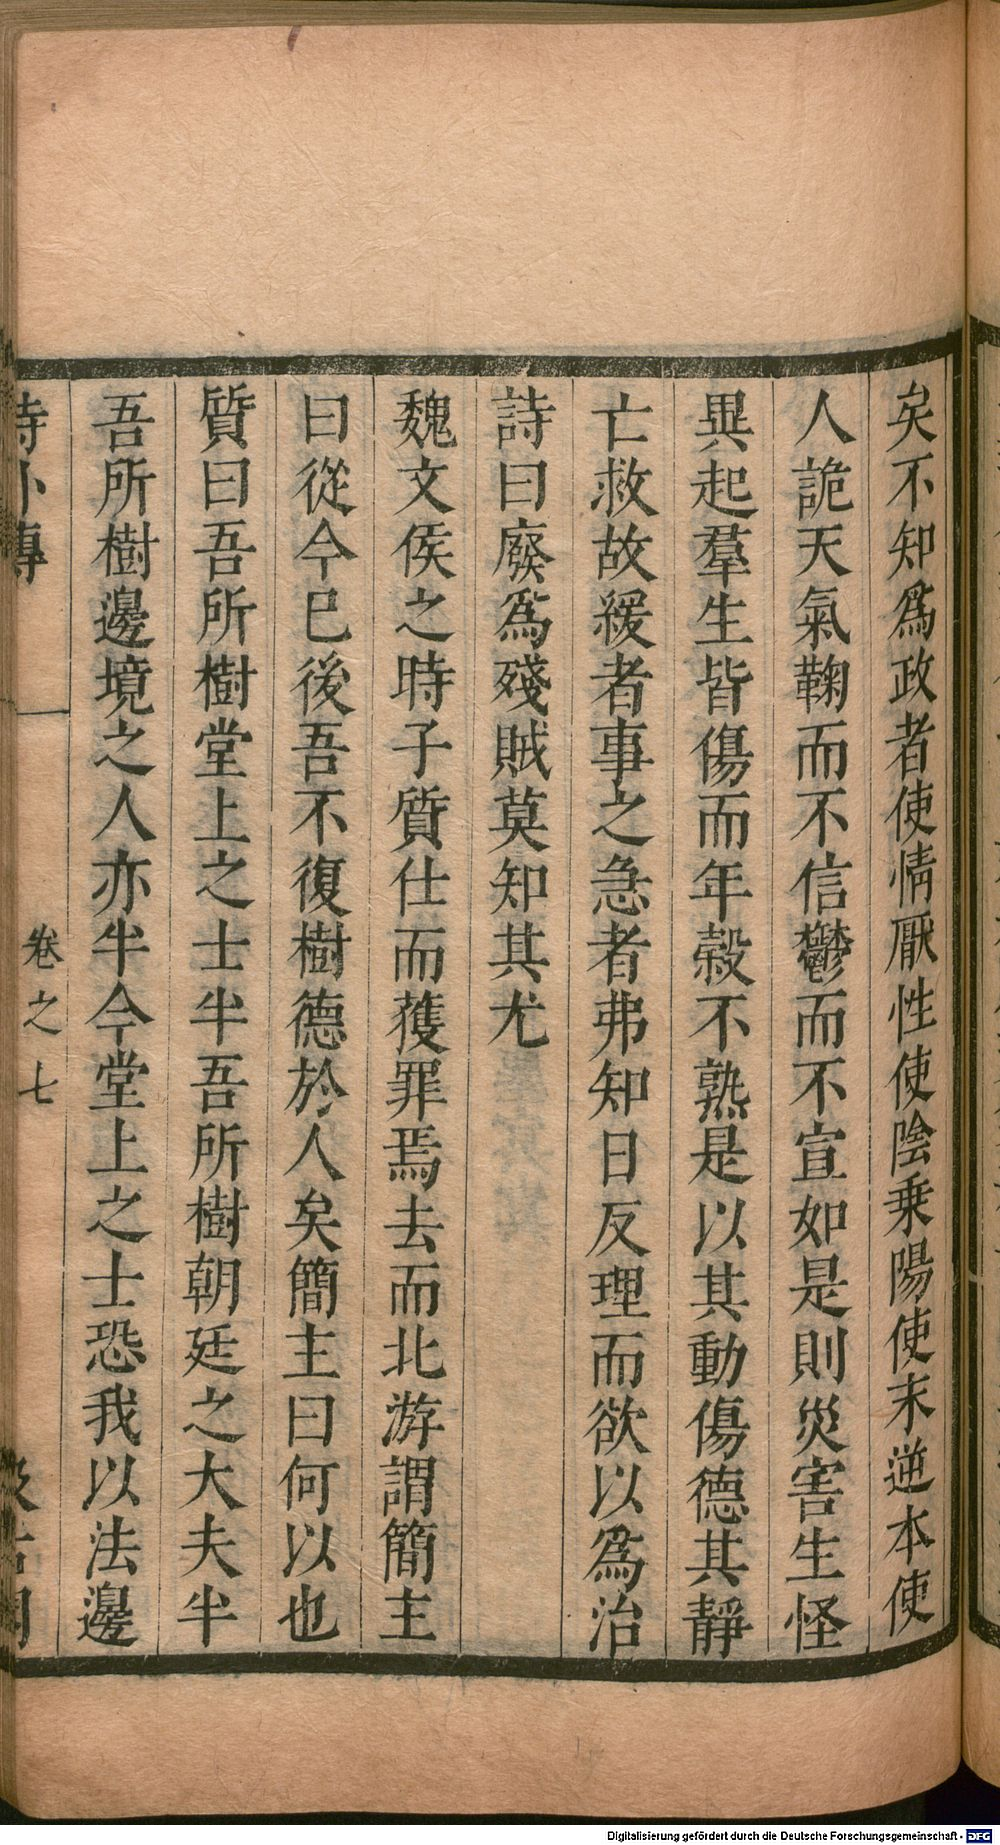 矣不知爲政者使情厭性使陰乗陽使末逆本使
人詭天氣鞠而不信鬱而不宣如是則災害生怪
異起羣生皆傷而年榖不熟是以其動傷德其靜
亡救故緩者事之急者弗知日反理而欲以爲治
詩曰廢爲殘賊莫知其尤
魏文侯之時子質仕而獲罪焉去而北游謂簡主
曰從今已後吾不復樹德於人矣簡主曰何以也
質曰吾所樹堂上之士半吾所樹朝廷之大夫半
吾所樹邊境之人亦半今堂上之士恐我以法邊
詩外傳 卷之七 汲古閣
Digitalisierung gefördert durch die Deutsche Forschungsgemeinschaft - DFG